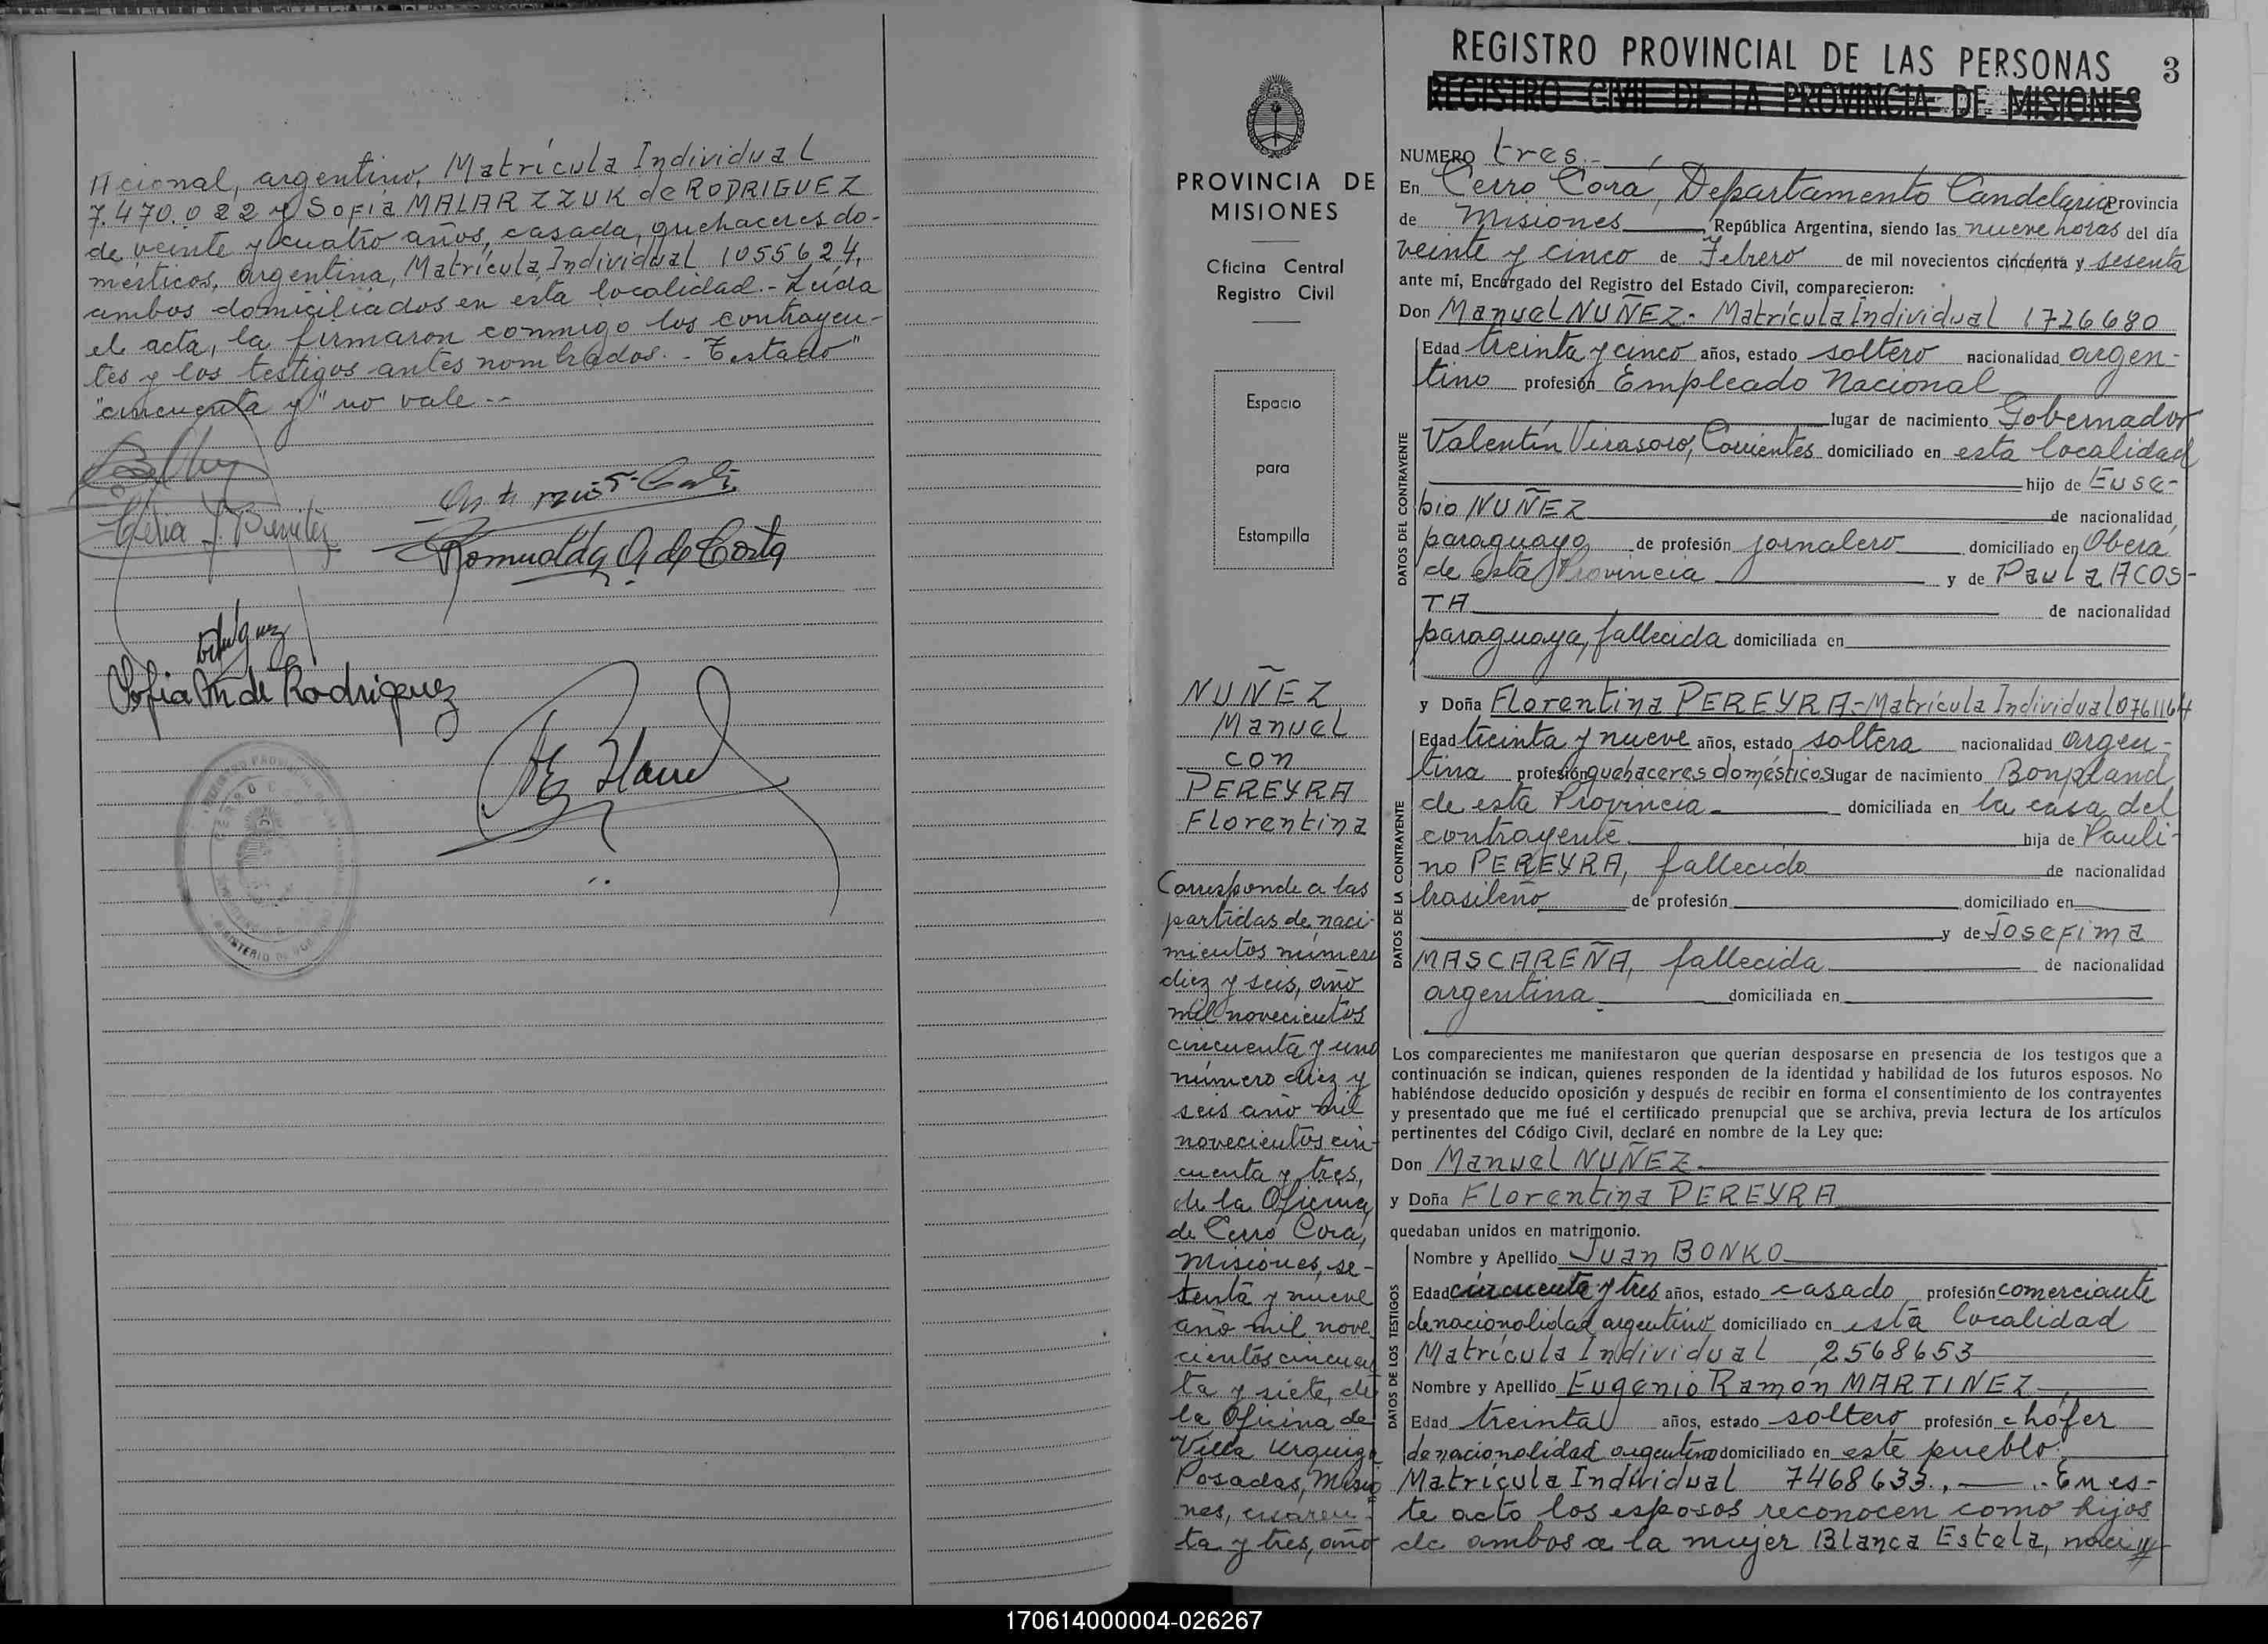 cional, argentino, Matrícula Individual
7.470.022 y Sofia MALARZZUK de RODRIGUEZ
de veinte y cuatro años, casada, quehaceres do-
mésticos, argentina, Matrícula Individual 1055624,
ambos domiciliados en esta localidad.- Leída
el acta, la firmaron conmigo los contrayen-
tes y los testigos antes nombrados.- Testado"
"cincuenta y" no vale.--
Benitez
Romualda A de Costa
Sofia M de Rodriguez
PROVINCIA DE
MISIONES
Oficina Central
Registro Civil
Espacio
para
Estampilla
NUÑEZ
Manuel
con
PEREYRA
Florentina
Corresponde a las
partidas de naci-
mientos número
diez y seis, año
mil novecientos
cincuenta y uno
número diez y
seis año mil
novecientos cin-
cuenta y tres,
de la Oficina
de Cerro Corá,
Misiones, se-
tenta y nueve
año mil nove
cientos cincuen
ta y siete, de
la Oficina de
Villa Urquiza
Posadas, Misio
nes, cuaren-
ta y tres, año
REGISTRO PROVINCIAL DE LAS PERSONAS 3
REGISTRO CIVIL DE LA PROVINCIA DE MISIONES
NUMERO tres.-
En Cerro Corá, Departamento Candelaria Provincia
de Misiones República Argentina, siendo las nueve horas del día
veinte y cinco de Febrero de mil novecientos cincuenta y sesenta
ante mí, Encargado del Registro del Estado Civil, comparecieron:
Don Manuel NUÑEZ.- Matrícula Individual 1726680
Edad treinta y cinco años, estado soltero nacionalidad argen-
tino profesión Empleado Nacional
lugar de nacimiento Gobernador
Valentín Virasoro, Corrientes domiciliado en esta localidad
hijo de Euse-
bio NUÑEZ
de nacionalidad
paraguayo de profesión jornalero domiciliado en Oberá
de esta Provincia y de Paula ACOS-
TA de nacionalidad
paraguaya, fallecida domiciliada en
DATOS DEL CONTRAYENTE
y Doña Florentina PEREYRA-Matrícula Individual 0761164
Edad treinta y nueve años, estado soltera nacionalidad argen-
tina profesión quehaceres domésticos lugar de nacimiento Bonpland
de esta Provincia domiciliada en la casa del
contrayente. hija de Pauli-
no PEREYRA, fallecido de nacionalidad
brasileño de profesión domiciliado en
y de Josefima
MASCAREÑA, fallecida de nacionalidad
argentina domiciliada en
DATOS DE LA CONTRAYENTE
Los comparecientes me manifestaron que querían desposarse en presencia de los testigos que a
continuación se indican, quienes responden de la identidad y habilidad de los futuros esposos. No
habiéndose deducido oposición y después de recibir en forma el consentimiento de los contrayentes
y presentado que me fué el certificado prenupcial que se archiva, previa lectura de los artículos
pertinentes del Código Civil, declaré en nombre de la Ley que:
Don Manuel NUÑEZ.
y Doña Florentina PEREYRA
quedaban unidos en matrimonio.
Nombre y Apellido Juan BONKO
Edad cincuenta y tres años, estado casado profesión comerciante
de nacionalidad argentino domiciliado en esta localidad
Matrícula Individual 2568653
Nombre y Apellido Eugenio Ramón MARTINEZ
Edad treinta años, estado soltero profesión chófer
de nacionalidad argentino domiciliado en este pueblo.
DATOS DE LOS TESTIGOS
Matrícula Individual 7468633.,— .-En es-
te acto los esposos reconocen como hijos
de ambos a la mujer Blanca Estela, naci
170614000004-026267